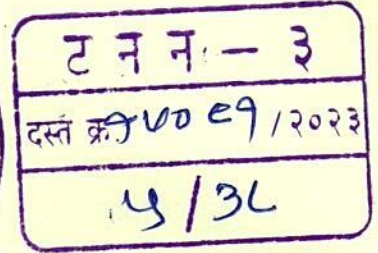 ट न न - ३
दस्त क्र १५०९१ / २०२३
५ / ३८